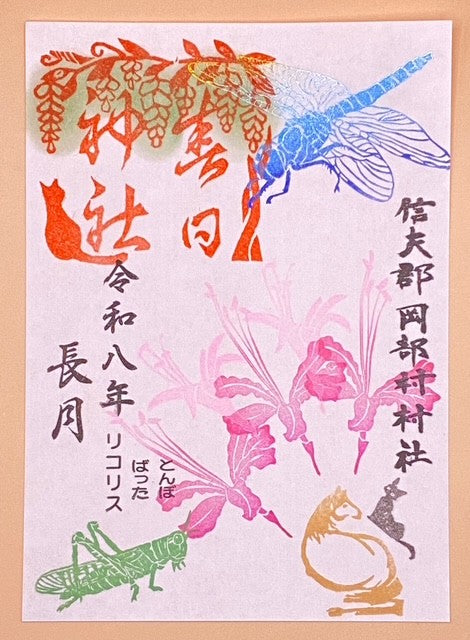 信夫郡岡部村村社
春日
神社
令和八年
長月
とんぼ
ばった
リコリス